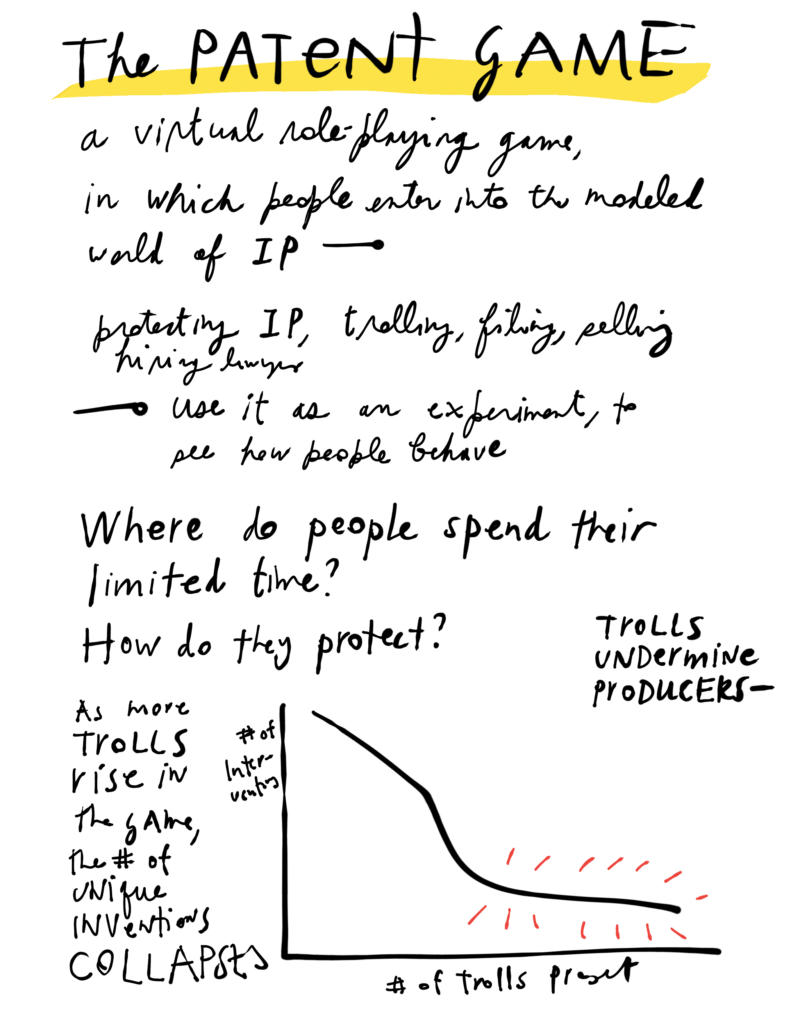 The PATENT GAME
a virtual role-playing game,
in which people enter into the modeled
world of IP
protecting IP, trolling, filing, selling
hiring lawyers
use it as an experiment, to
see how people behave
Where do people spend their
limited time?
How do they protect?
TROLLS
UNDERMINE
PRODUCERS—
As more
TROLLS
rise in
the game,
the # of
UNIQUE
INVENTIONS
COLLAPSES
# of
Inter-
# of Trolls